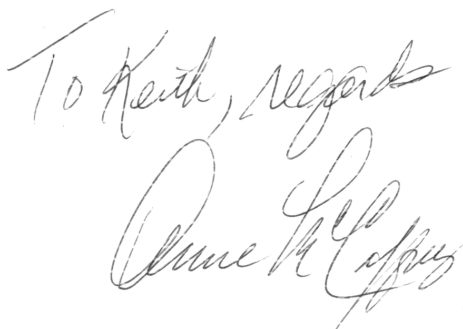 To Keith, regards
Anne McCaffrey